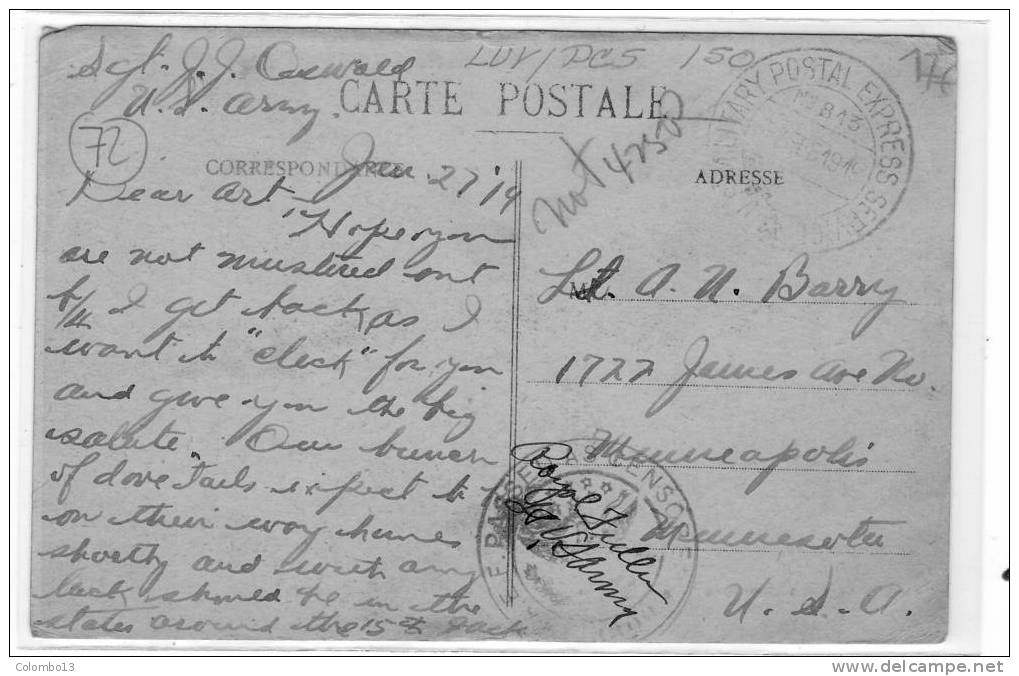 Sgt. J. J. Oswald
U.S. Army.
LUV/PCS 150
CARTE POSTALE
72
CORRESPONDANCE
ADRESSE
MILITARY POSTAL EXPRESS SERVICE
No 813
1919
not 4250
Jan. 27 '19
Dear Art -
Hope you
are not mustered out
b/4 I get back, as I
want to "click" for you
and give you the big
salute. Our bunch
of dove tails expect to be
on their way home
shortly and with any
luck should be in the
states around the 15th
Lt. A. N. Barry
1722 James Ave No.
Minneapolis
Minnesota
U. S. A.
PASSED AS CENSORED
Royal Fuller
Lt USArmy
Colombo13
www.delcampe.net